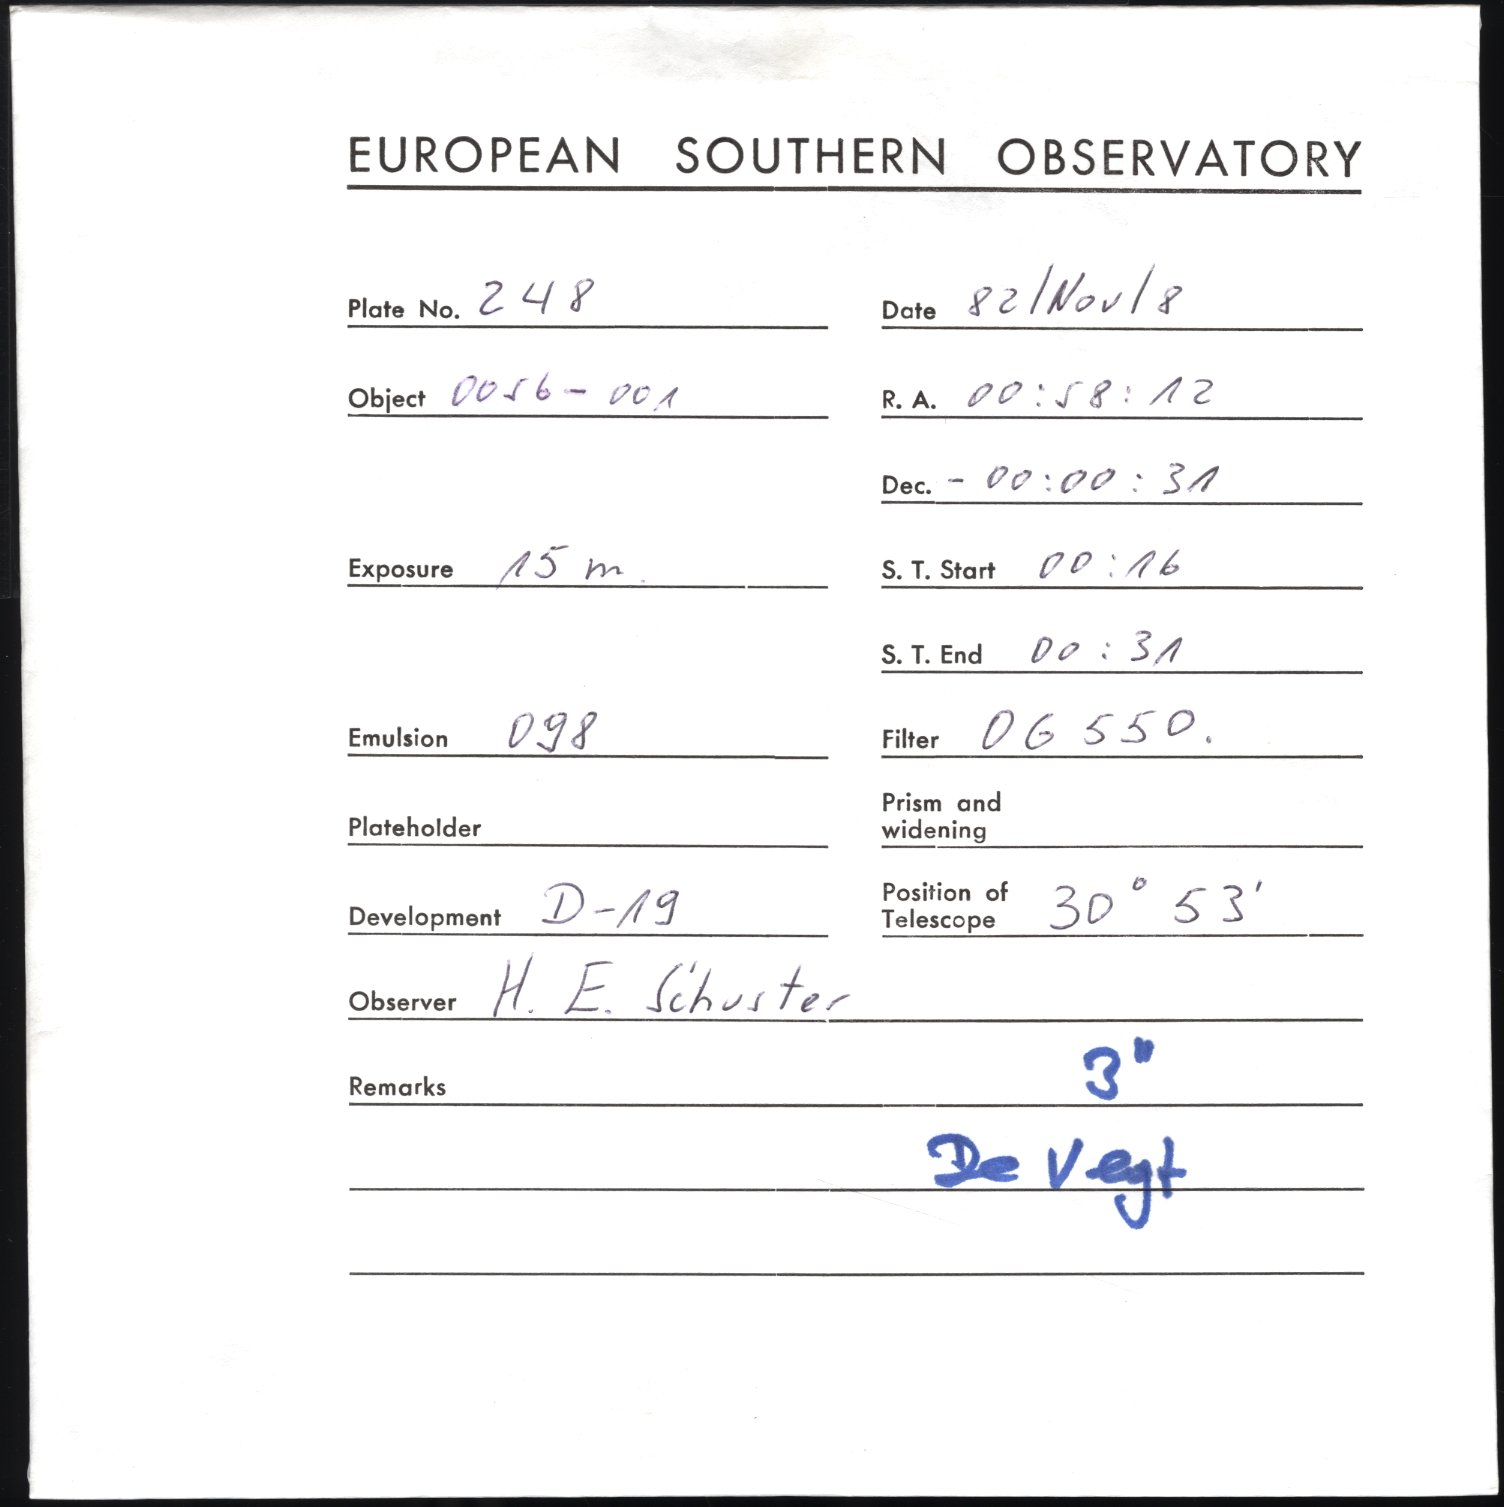 EUROPEAN SOUTHERN OBSERVATORY
Plate No. 248 Date 82/Nov/8
Object 0056-001 R. A. 00:58:12
Dec. - 00:00:31
Exposure 15 m. S. T. Start 00:16
S. T. End 00:31
Emulsion 098 Filter OG 550.
Plateholder Prism and widening
Development D-19 Position of Telescope 30° 53'
Observer H. E. Schuster
Remarks 3"
De Vegt